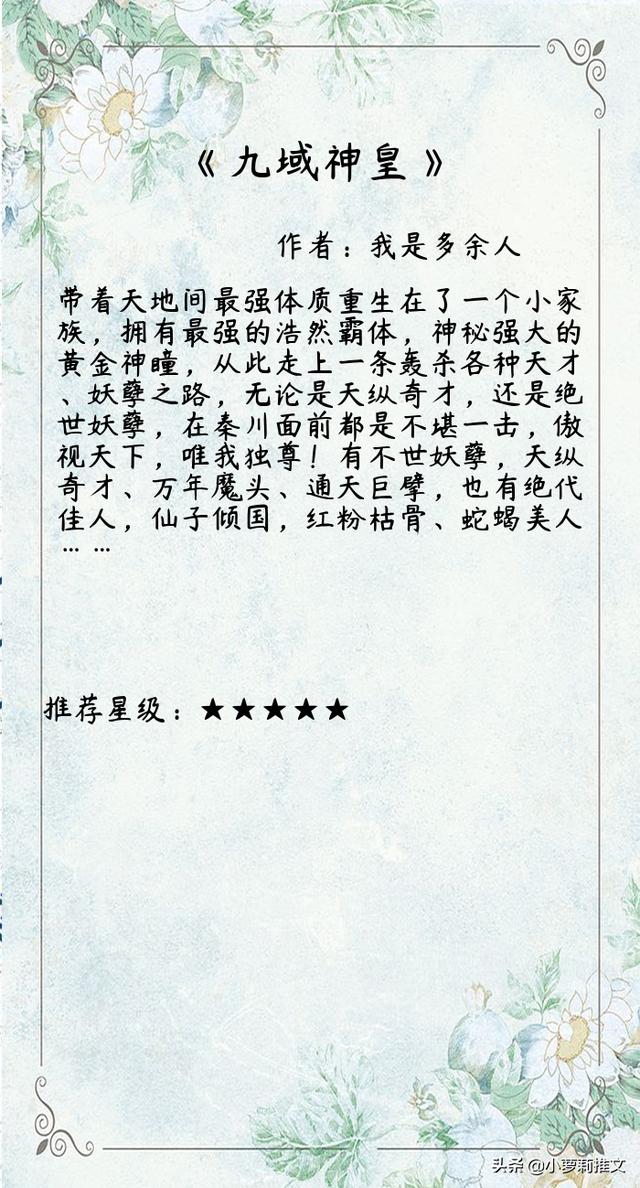 《九域神皇》
作者：我是多余人
带着天地间最强体质重生在了一个小家
族，拥有最强的浩然霸体，神秘强大的
黄金神瞳，从此走上一条轰杀各种天才
、妖孽之路，无论是天纵奇才，还是绝
世妖孽，在秦川面前都是不堪一击，傲
视天下，唯我独尊！有不世妖孽，天纵
奇才、万年魔头、通天巨擘，也有绝代
佳人，仙子倾国，红粉枯骨、蛇蝎美人
……
推荐星级：★★★★★
头条 @小萝莉推文